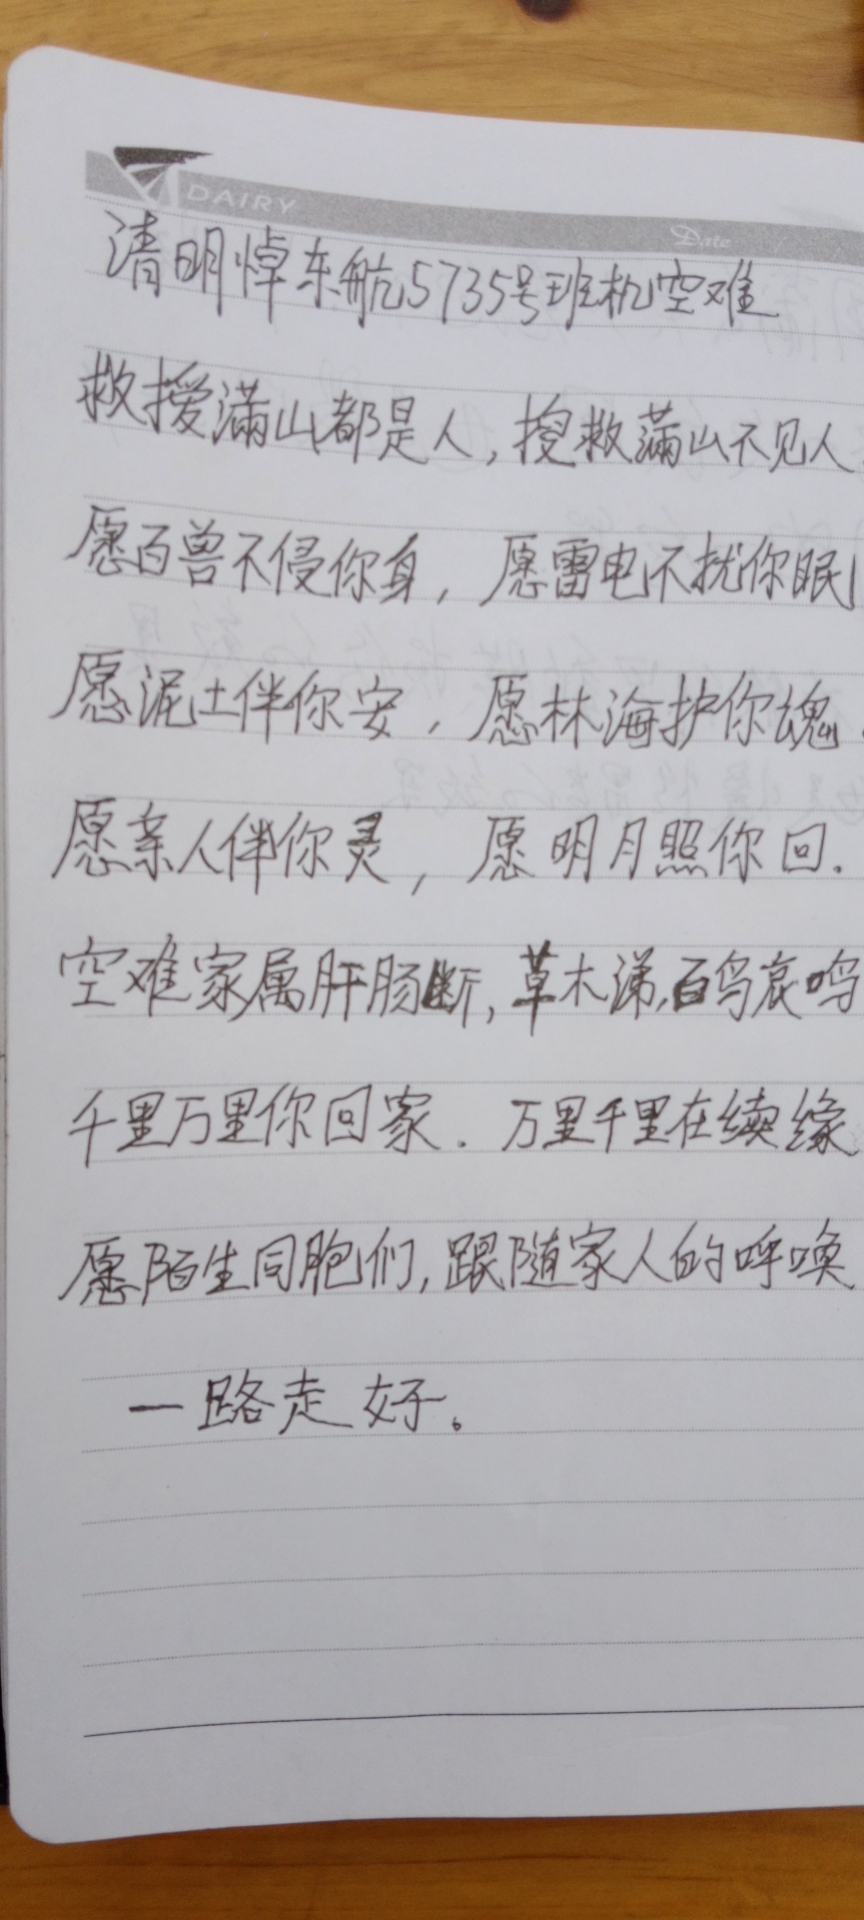 DAIRY
Date
清明悼东航5735号班机空难
救援满山都是人,搜救满山不见人
愿百兽不侵你身,愿雷电不扰你眠
愿泥土伴你安,愿林海护你魂.
愿亲人伴你灵,愿明月照你回.
空难家属肝肠断,草木涕,百鸟哀鸣
千里万里你回家.万里千里在续缘
愿陌生同胞们,跟随家人的呼唤
一路走好。